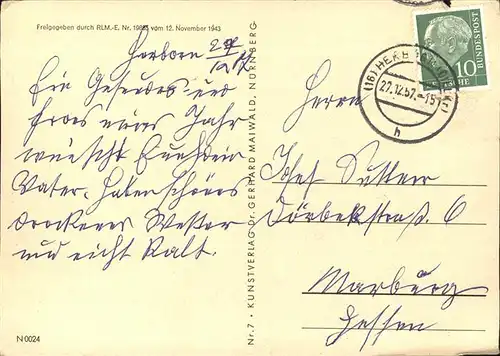 Freigegeben durch RLM.-E. Nr. vom 12. November 1943
Herborn 27/12 57
Ein Gesundes und
Frohes neues Jahr
wünscht Euch Dein
Vater. Haben Schönes
trockenes Wetter
und nicht Kalt.
N 0024
Nr. 7 • KUNSTVERLAG Dr. GERHARD MAIWALD, NÜRNBERG
DEUTSCHE BUNDESPOST
10
(16) HERBORN
27.12.57.-15
h
Herrn
Josef
6
Marburg
Hessen